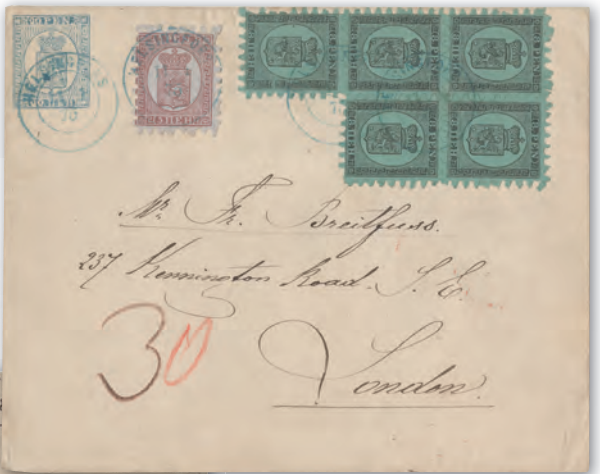 20 PEN
HELSINGFORS
Mr. Fr. Breitfuss.
237 Kennington Road. S. E.
London.
30